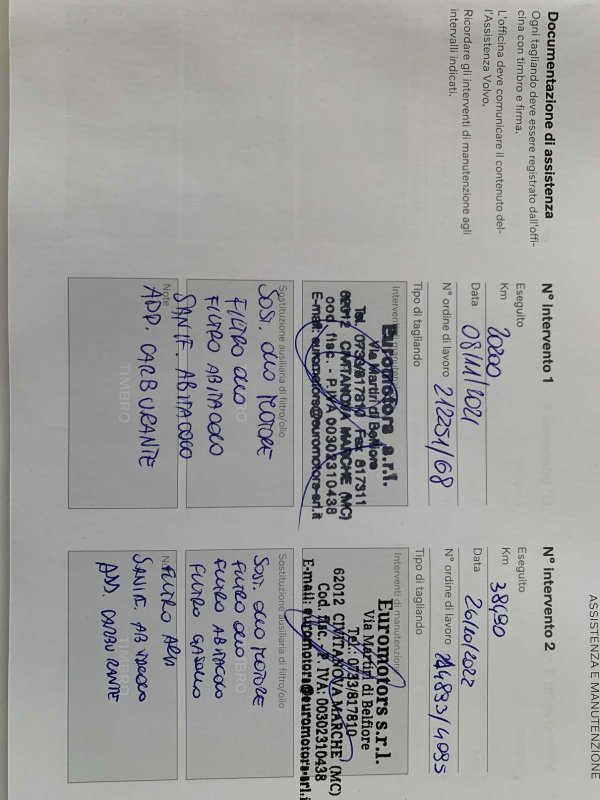 ASSISTENZA E MANUTENZIONE
Documentazione di assistenza
Ogni tagliando deve essere registrato dall'offi-
cina con timbro e firma.
L'officina deve comunicare il contenuto del-
l'Assistenza Volvo.
Ricordare gli interventi di manutenzione agli
intervalli indicati.
N° intervento 1
Eseguito
Km 20200
Data 08/11/2021
N° ordine di lavoro 212251/68
Tipo di tagliando
Interventi di manutenzione
Euromotors s.r.l.
Via Martiri di Belfiore
Tel. 0733/817810 Fax 817311
62012 CIVITANOVA MARCHE (MC)
cod. fisc. - P. IVA 00302310438
E-mail: euromotors@euromotors-srl.it
Sostituzione ausiliaria di filtro/olio
SOS. OLIO MOTORE
FILTRO OLIO
FILTRO ABITACOLO
SANIF. ABITACOLO
Note
ADD. CARBURANTE
TIMBRO
N° intervento 2
Eseguito
Km 38490
Data 26/10/2022
N° ordine di lavoro
Tipo di tagliando
Interventi di manutenzione
Euromotors s.r.l.
Via Martiri di Belfiore
Tel.: 0733/817810
62012 CIVITANOVA MARCHE (MC)
Cod. fisc. P. IVA: 00302310438
E-mail: euromotors@euromotors-srl.i
Sostituzione ausiliaria di filtro/olio
SOST. OLIO MOTORE
FILTRO OLIO
FILTRO ABITACOLO
FILTRO GASOLIO
FILTRO ARIA
SANIF. ABITACOLO
ADD. CARBURANTE
TIMBRO